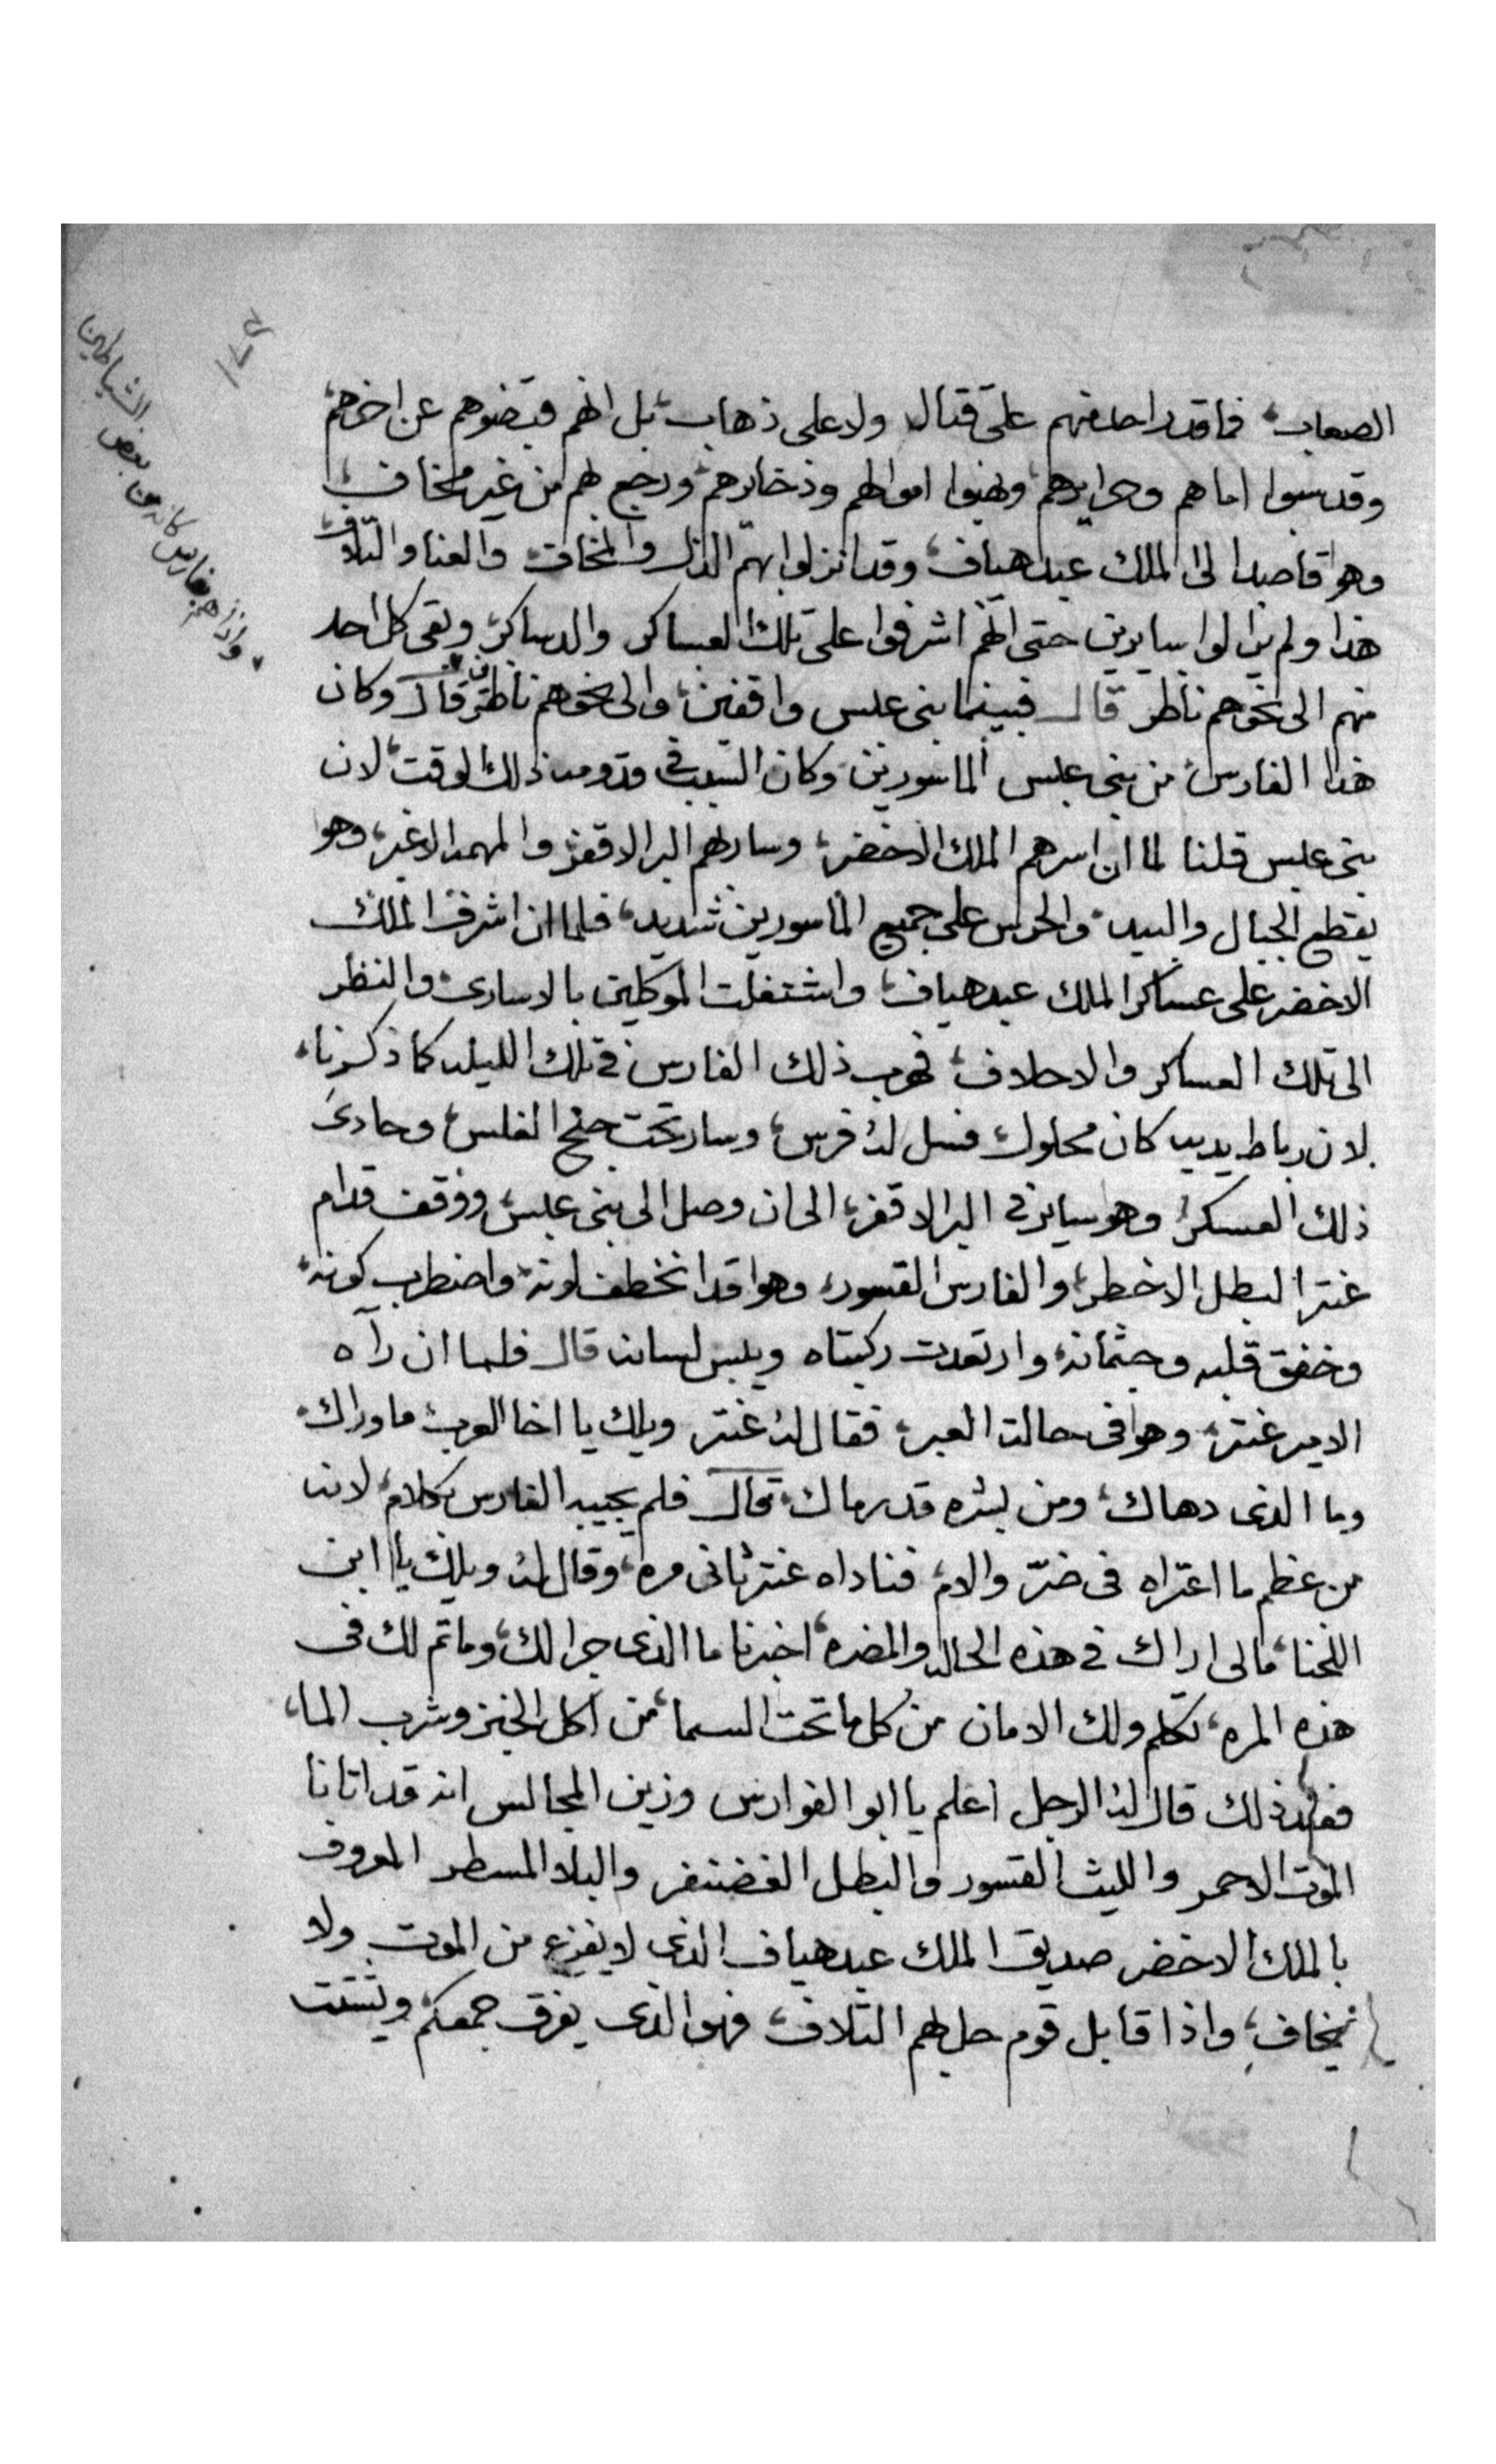 الصعاب، فما قدر احد منهم على قتال ولا على ذهاب، بل انهم قبضوهم عن اخرهم،
وقد سبوا اماهم وحرايرهم، ونهبوا اموالهم وذخايرهم، ورجع بهم من غير مخاف،
وهو قاصدا الى الملك عبد هياف، وقد انزلوا بهم الذل والمخافه والعنا والتلاف،
هذا ولم يزالوا سايرين حتى انهم اشرفوا على تلك العساكر والدساكر، وبقى كل احد
منهم الى نحوهم ناظر قال فبينما بنى عبس واقفين، والى نحوهم ناظرين قال وكان
واذا هم بفارس كانه من بعض الشياطين
هذا الفارس من بنى عبس الماسورين، وكان السبب فى قدومه ذلك الوقت، لان
بنى عبس قلنا لما ان اسرهم الملك الاخضر، وسار بهم البر الاقفر، والمهمه الاغبر، وهو
يقطع الجبال والبيد، والحرس على جميع الماسورين شديد، فلما ان اشرف الملك
الاخضر على عساكر الملك عبد هياف، واشتغلت الموكلين بالاسارى، والنظر
الى تلك العساكر والاحلاف، فهرب ذلك الفارس فى تلك الليله كما ذكرنا،
لان رباط يديه كان محلول، فسل له فرس، وسار تحت جنح الغلس، وحادى
ذلك العسكر، وهو ساير فى البر الاقفر، الى ان وصل الى بنى عبس، ووقف قدام
عنتر البطل الاخطر، والفارس القسور، وهو قد انخطف لونه، واضطرب كونه،
وخفق قلبه وجثمانه، وارتعدت ركبتاه ويبس لسانه قال فلما ان رآه
الامير عنتر، وهو فى حالت العبر، فقال له عنتر ويلك يا اخا العرب، ما وراك،
وما الذى دهاك، ومن بشره قد رماك، قال فلم يجيبه الفارس بكلام، لانه
من عظم ما اعتراه فى ضرّ والام، فناداه عنتر ثانى مره، وقال له ويلك يا ابن
اللخنا، مالى اراك فى هذه الحاله والمضره، اخبرنا ما الذى جرا لك، وما تم لك فى
هذه المره، تكلم ولك الامان من كل ما تحت السما، من اكل الخبز وشرب الما،
فعند ذلك قال له الرجل اعلم يا ابو الفوارس وزين المجالس انه قد اتانا
الموت الاحمر والليث القسور والبطل الغضنفر والبلا المسطر المعروف
بالملك الاخضر صديق الملك عبد هياف الذى لا يفزع من الموت ولا
يخاف، واذا قابل قوم حل بهم التلاف، فهو الذى يفرق جمعكم، ويشتت